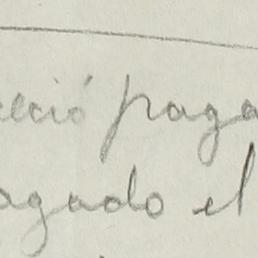 eció paga
agado el